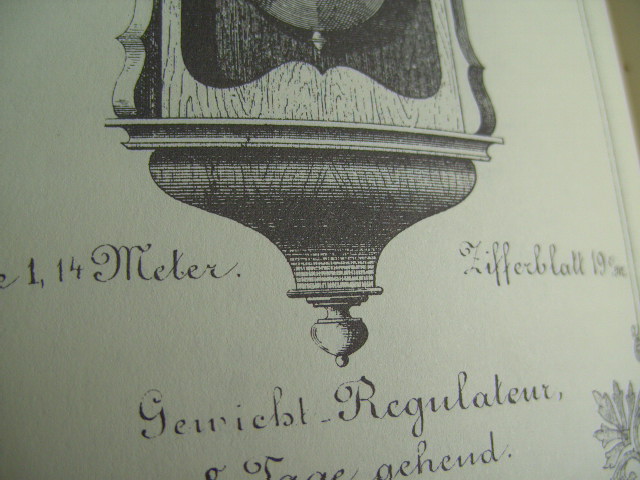 e 1,14 Meter.
Zifferblatt 19 c/m
Gewicht-Regulateur,
8 Tage gehend.